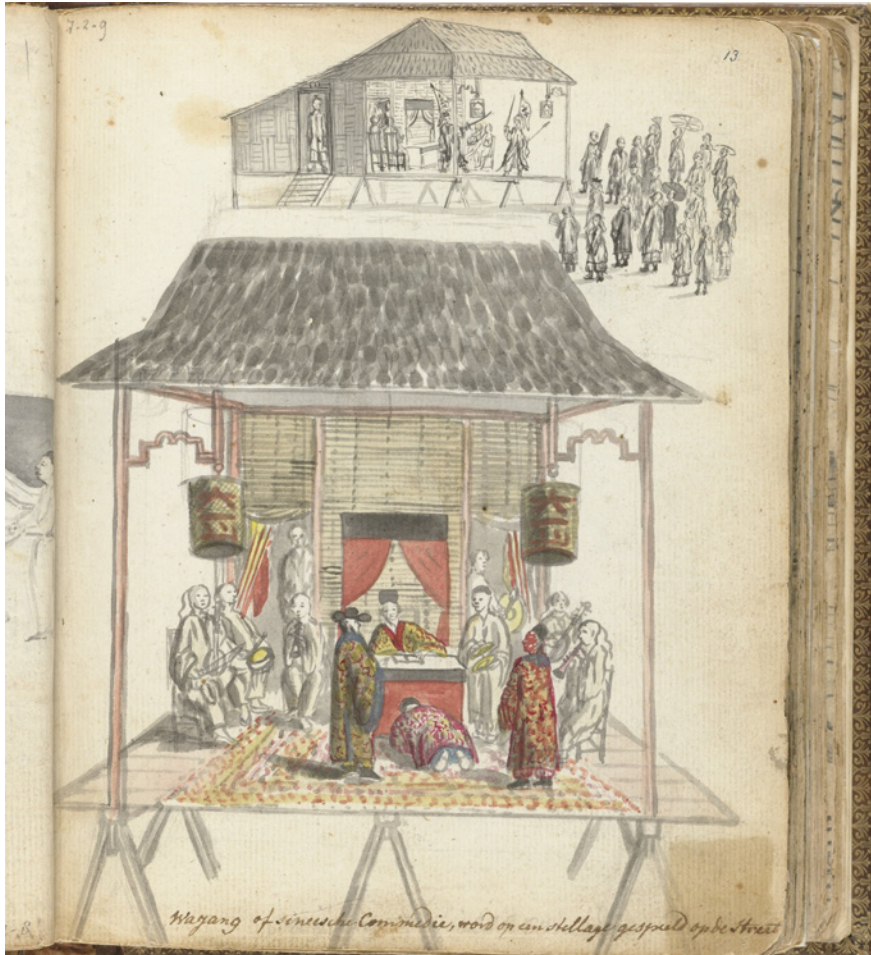 7-2-9
13
Wayang of sineesche Commedie, word op een stellage gespeeld op de Straet